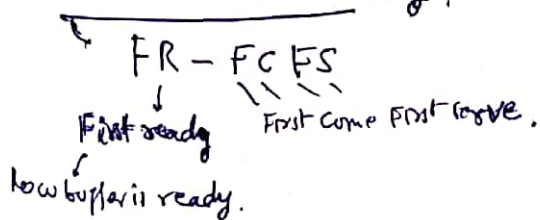 FR - FCFS
First ready First come First serve.
Row buffer is ready.